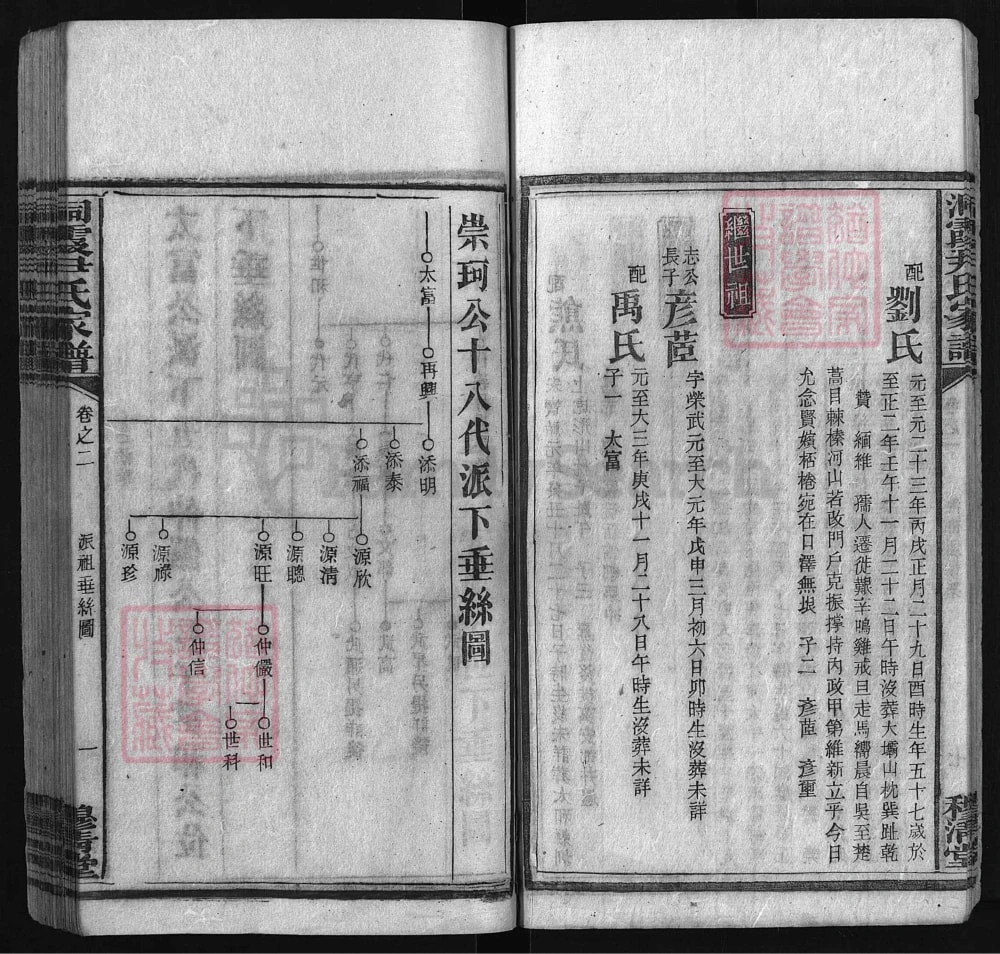 洞霞尹氏家譜
穆清堂
配
劉氏
元至元二十三年丙戌正月二十九日酉時生年五十七歲於
至正二年壬午十一月二十二日午時沒葬大壩山枕巽趾乾
贊 緬維 孺人遷徙艱辛鳴雞戒旦走馬嚮晨自吳至楚
蒿目棘榛河山若改門戶克振撐持內政甲第維新立乎今日
允念賢嬪栝棬宛在口澤無垠 子二 彥茝 彥壐
繼世祖
志公
長子
彥茝
字榮武元至大元年戊申三月初六日卯時生沒葬未詳
配
禹氏
元至大三年庚戌十一月二十八日午時生沒葬未詳
子一 太富
崇珂公十八代派下垂絲圖
太富
再興
添明
添泰
添福
源欣
源清
源聰
源旺
源祿
源珍
仲儼
仲信
世和
世科
洞霞尹氏家譜
卷之二
派祖垂絲圖
一
穆清堂